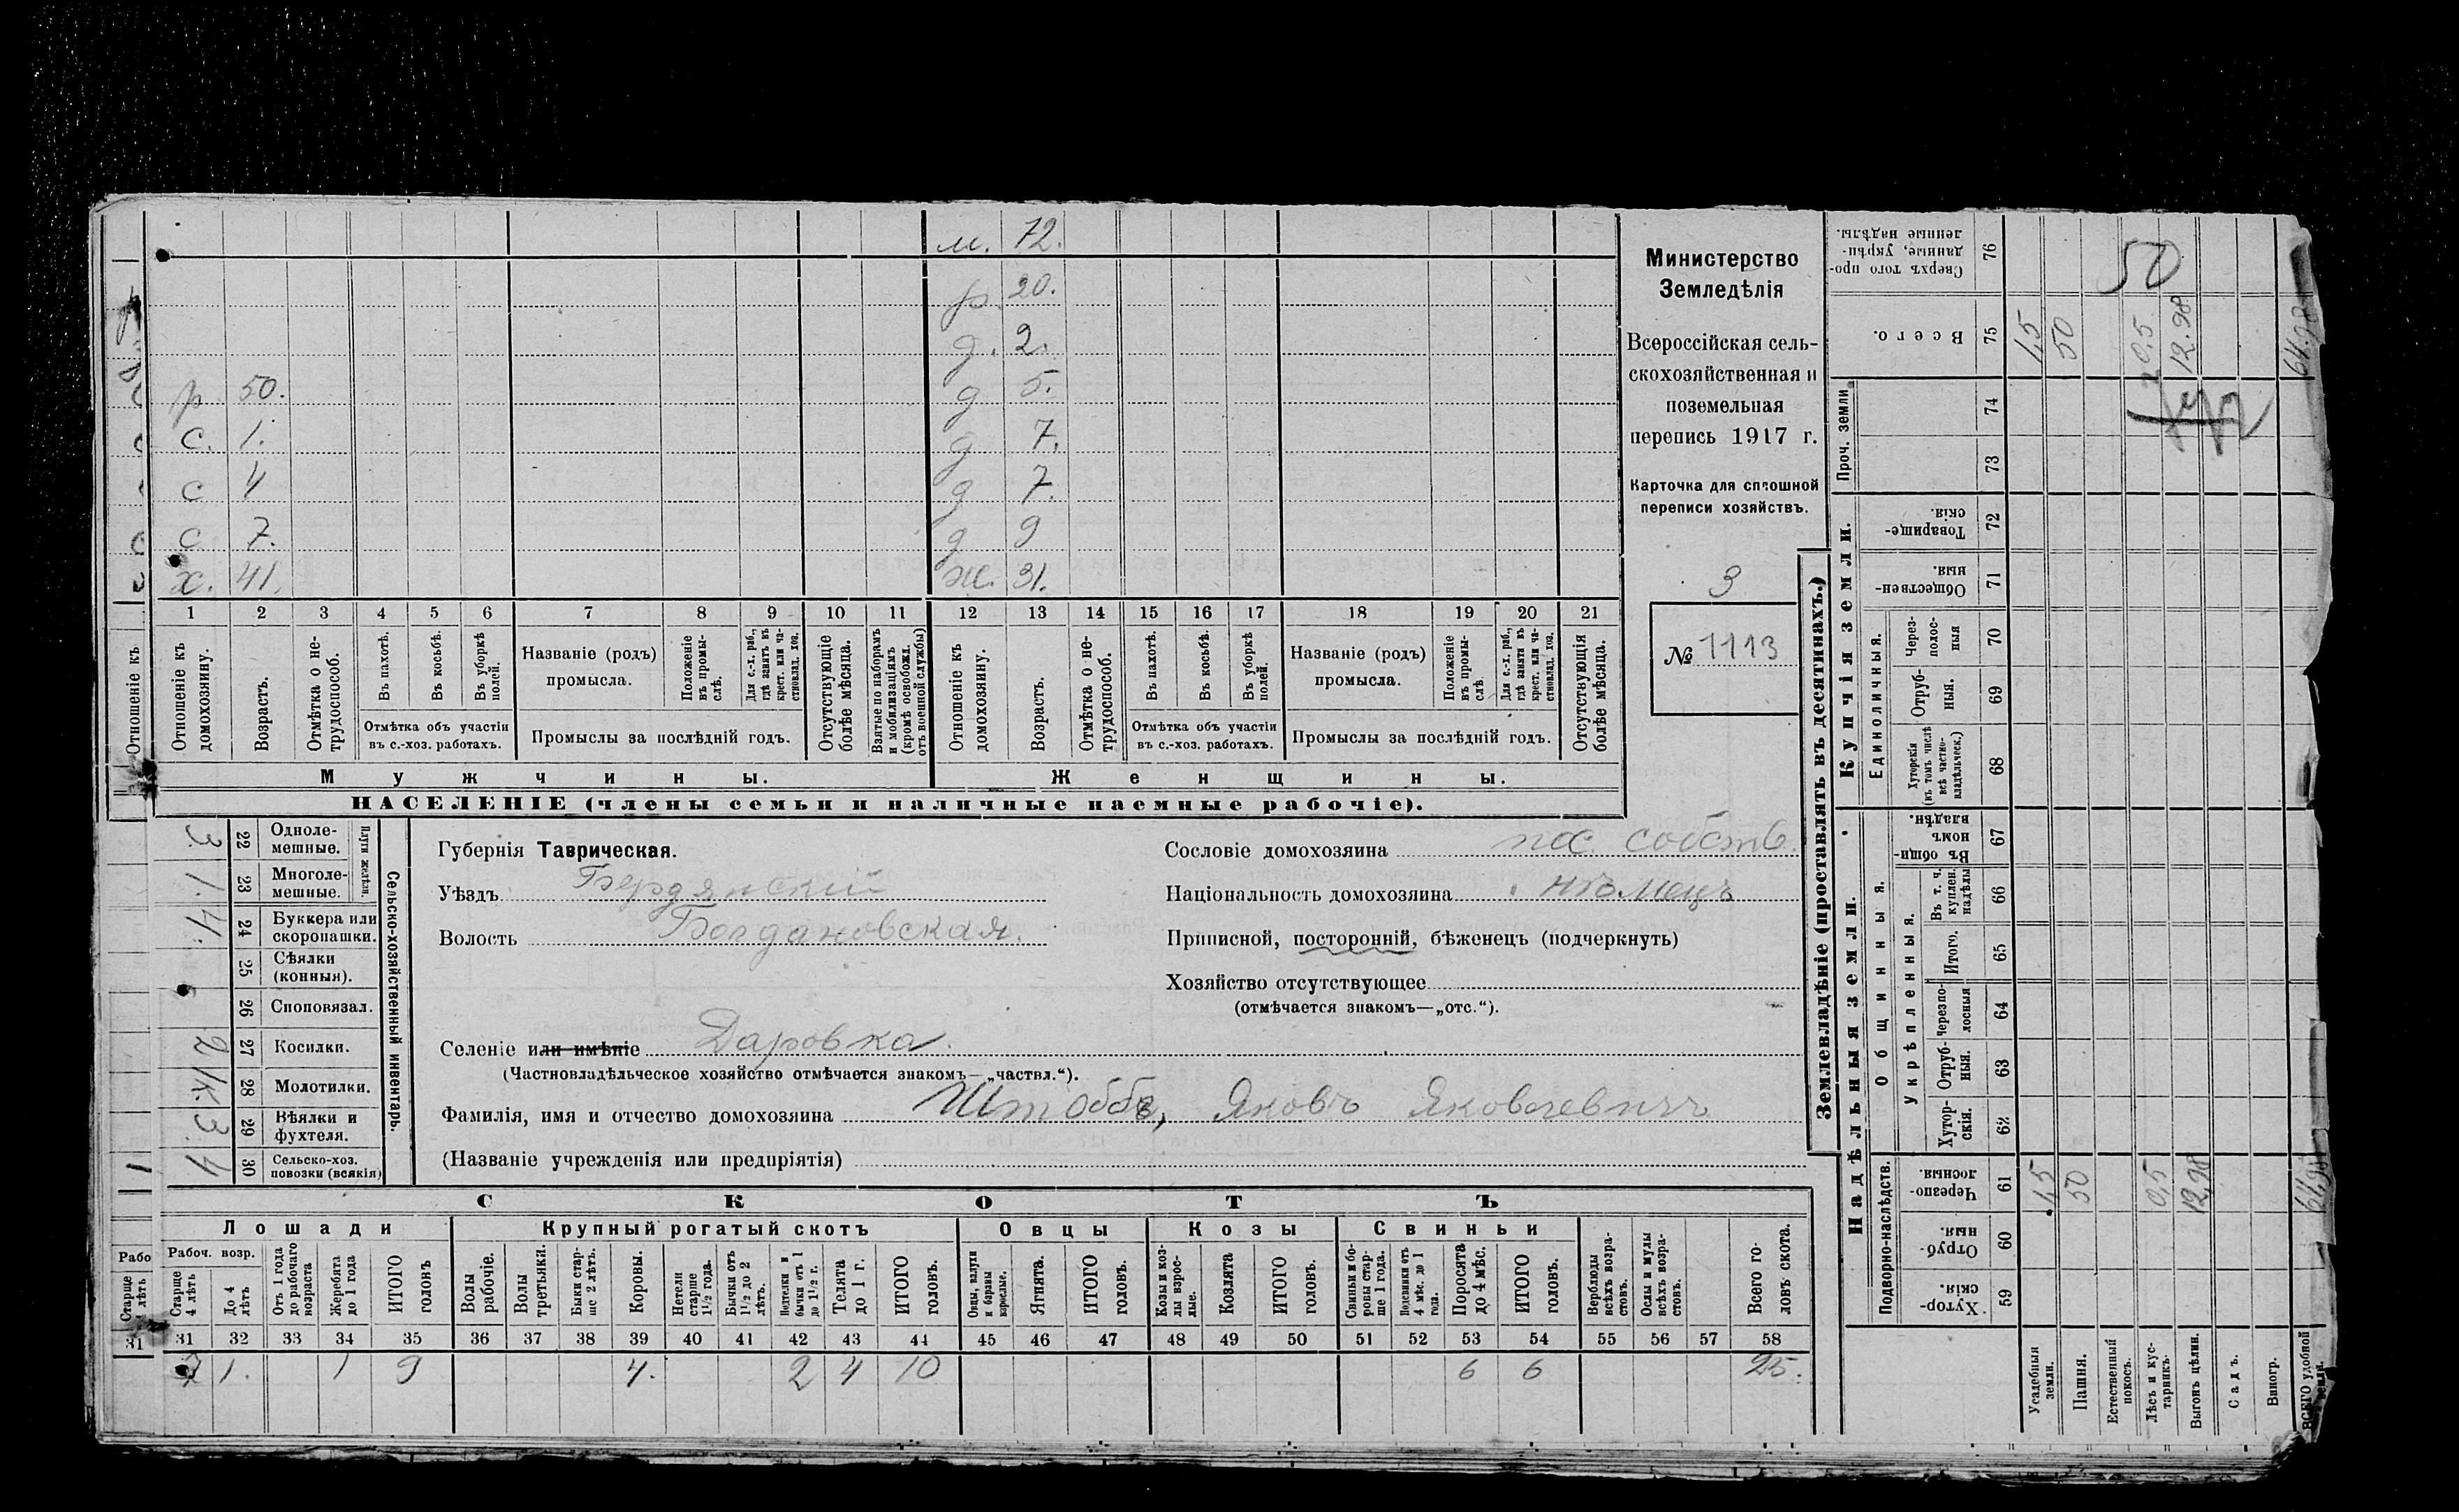 м. 72.
р. 20.
д. 2.
р. 50. д 5.
с. 1. д 7.
с 4 д 7.
с 7. д 9
х. 41. ж. 31.
1 2 3 4 5 6 7 8 9 10 11 12 13 14 15 16 17 18 19 20 21
Отношеніе къ
Отношеніе къ домохозяину.
Возрастъ.
Отмѣтка о нетрудоспособ.
Въ пахотѣ.
Въ косьбѣ.
Въ уборкѣ полей.
Отмѣтка объ участіи въ с.-хоз. работахъ.
Названіе (родъ) промысла.
Положеніе въ промыслѣ.
Для с.-х. раб., гдѣ занятъ въ крест. или частновлад. хоз.
Промыслы за послѣдній годъ.
Отсутствующіе болѣе мѣсяца.
Взятые по наборамъ и мобилизаціямъ (кромѣ освобожд. отъ военной службы)
Отношеніе къ домохозяину.
Возрастъ.
Отмѣтка о нетрудоспособ.
Въ пахотѣ.
Въ косьбѣ.
Въ уборкѣ полей.
Отмѣтка объ участіи въ с.-хоз. работахъ.
Названіе (родъ) промысла.
Положеніе въ промыслѣ.
Для с.-х. раб., гдѣ заняти въ крест. или частновлад. хоз.
Промыслы за послѣдній годъ.
Отсутствующія болѣе мѣсяца.
Мужчины. Женщины.
НАСЕЛЕНІЕ (члены семьи и наличные наемные рабочіе).
Министерство
Земледѣлія
Всероссійская сель-
скохозяйственная и
поземельная
перепись 1917 г.
Карточка для сплошной
переписи хозяйствъ.
3
№ 1113
Сельско-хозяйственный инвентарь.
Плуги желѣзн.
3. 22 Одноле-мешные.
1. 23 Многоле-мешные.
4. 24 Буккера или скоропашки.
25 Сѣялки (конныя).
26 Сноповязал.
2 27 Косилки.
1к. 28 Молотилки.
3. 29 Вѣялки и фухтеля.
4 30 Сельско-хоз. повозки (всякія)
Губернія Таврическая.
Уѣздъ Бердянскій
Волость Богдановская.
Сословіе домохозяина пос. собств.
Національность домохозяина нѣмецъ
Приписной, посторонній, бѣженецъ (подчеркнуть)
Хозяйство отсутствующее
(отмѣчается знакомъ—„отс.“).
Селеніе или имѣніе Даровка.
(Частновладѣльческое хозяйство отмѣчается знакомъ—„частвл.“).
Фамилія, имя и отчество домохозяина Штоббе, Яковъ Яковлевичъ
(Названіе учрежденія или предпріятія)
СКОТЪ
Лошади Крупный рогатый скотъ Овцы Козы Свиньи
Рабо
Старше 4 лѣтъ
31
Рабоч. возр.
Старше 4 лѣтъ
До 4 лѣтъ
Отъ 1 года до рабочаго возраста
Жеребята до 1 года
ИТОГО головъ
Волы рабочіе.
Волы третьяки.
Быки старше 2 лѣтъ.
Коровы.
Нетели старше 1½ года.
Бычки отъ 1½ до 2 лѣтъ.
Нетелки и бычки отъ 1 до 1½ г.
Телята до 1 г.
ИТОГО головъ.
Овцы, валухи и бараны взрослые.
Ягнята.
ИТОГО головъ.
Козы и козлы взрослые.
Козлята
ИТОГО головъ.
Свиньи и боровы старше 1 года.
Подсвинки отъ 4 мѣс. до 1 года.
Поросята до 4 мѣс.
ИТОГО головъ.
Верблюды всѣхъ возрастовъ.
Ослы и мулы всѣхъ возрастовъ.
Всего головъ скота.
31 32 33 34 35 36 37 38 39 40 41 42 43 44 45 46 47 48 49 50 51 52 53 54 55 56 57 58
7 1. 1 9 4. 2 4 10 6 6 25.
Землевладѣніе (проставлять въ десятинахъ.)
Надѣльныя земли.
Купчія земли.
Проч. земли
Подворно-наслѣдств.
Общинныя.
Укрѣпленныя.
Единоличныя.
Сверхъ того проданные, укрѣпленные надѣлы. 76
Всего. 75
74
73
Товарищескія. 72
Общественныя. 71
Черезполосныя 70
Отрубныя. 69
Хуторскія (въ томъ числѣ всѣ частновладѣльческ.) 68
Въ общинномъ владѣн. 67
Въ т. ч. куплен. надѣлы 66
Итого. 65
Черезполосныя 64
Отрубныя. 63
Хуторскія. 62
Черезполосныя 61
Отрубныя. 60
Хуторскія. 59
Усадебныя земли.
Пашня.
Естественный покосъ.
Лѣсъ и кустарникъ.
Выгонъ цѣлин.
Садъ.
Виногр.
ВСЕГО удобной земли.
50
1,5 50 0,5 12.98 64,98
1,5 50 0,5 12,98 64,98